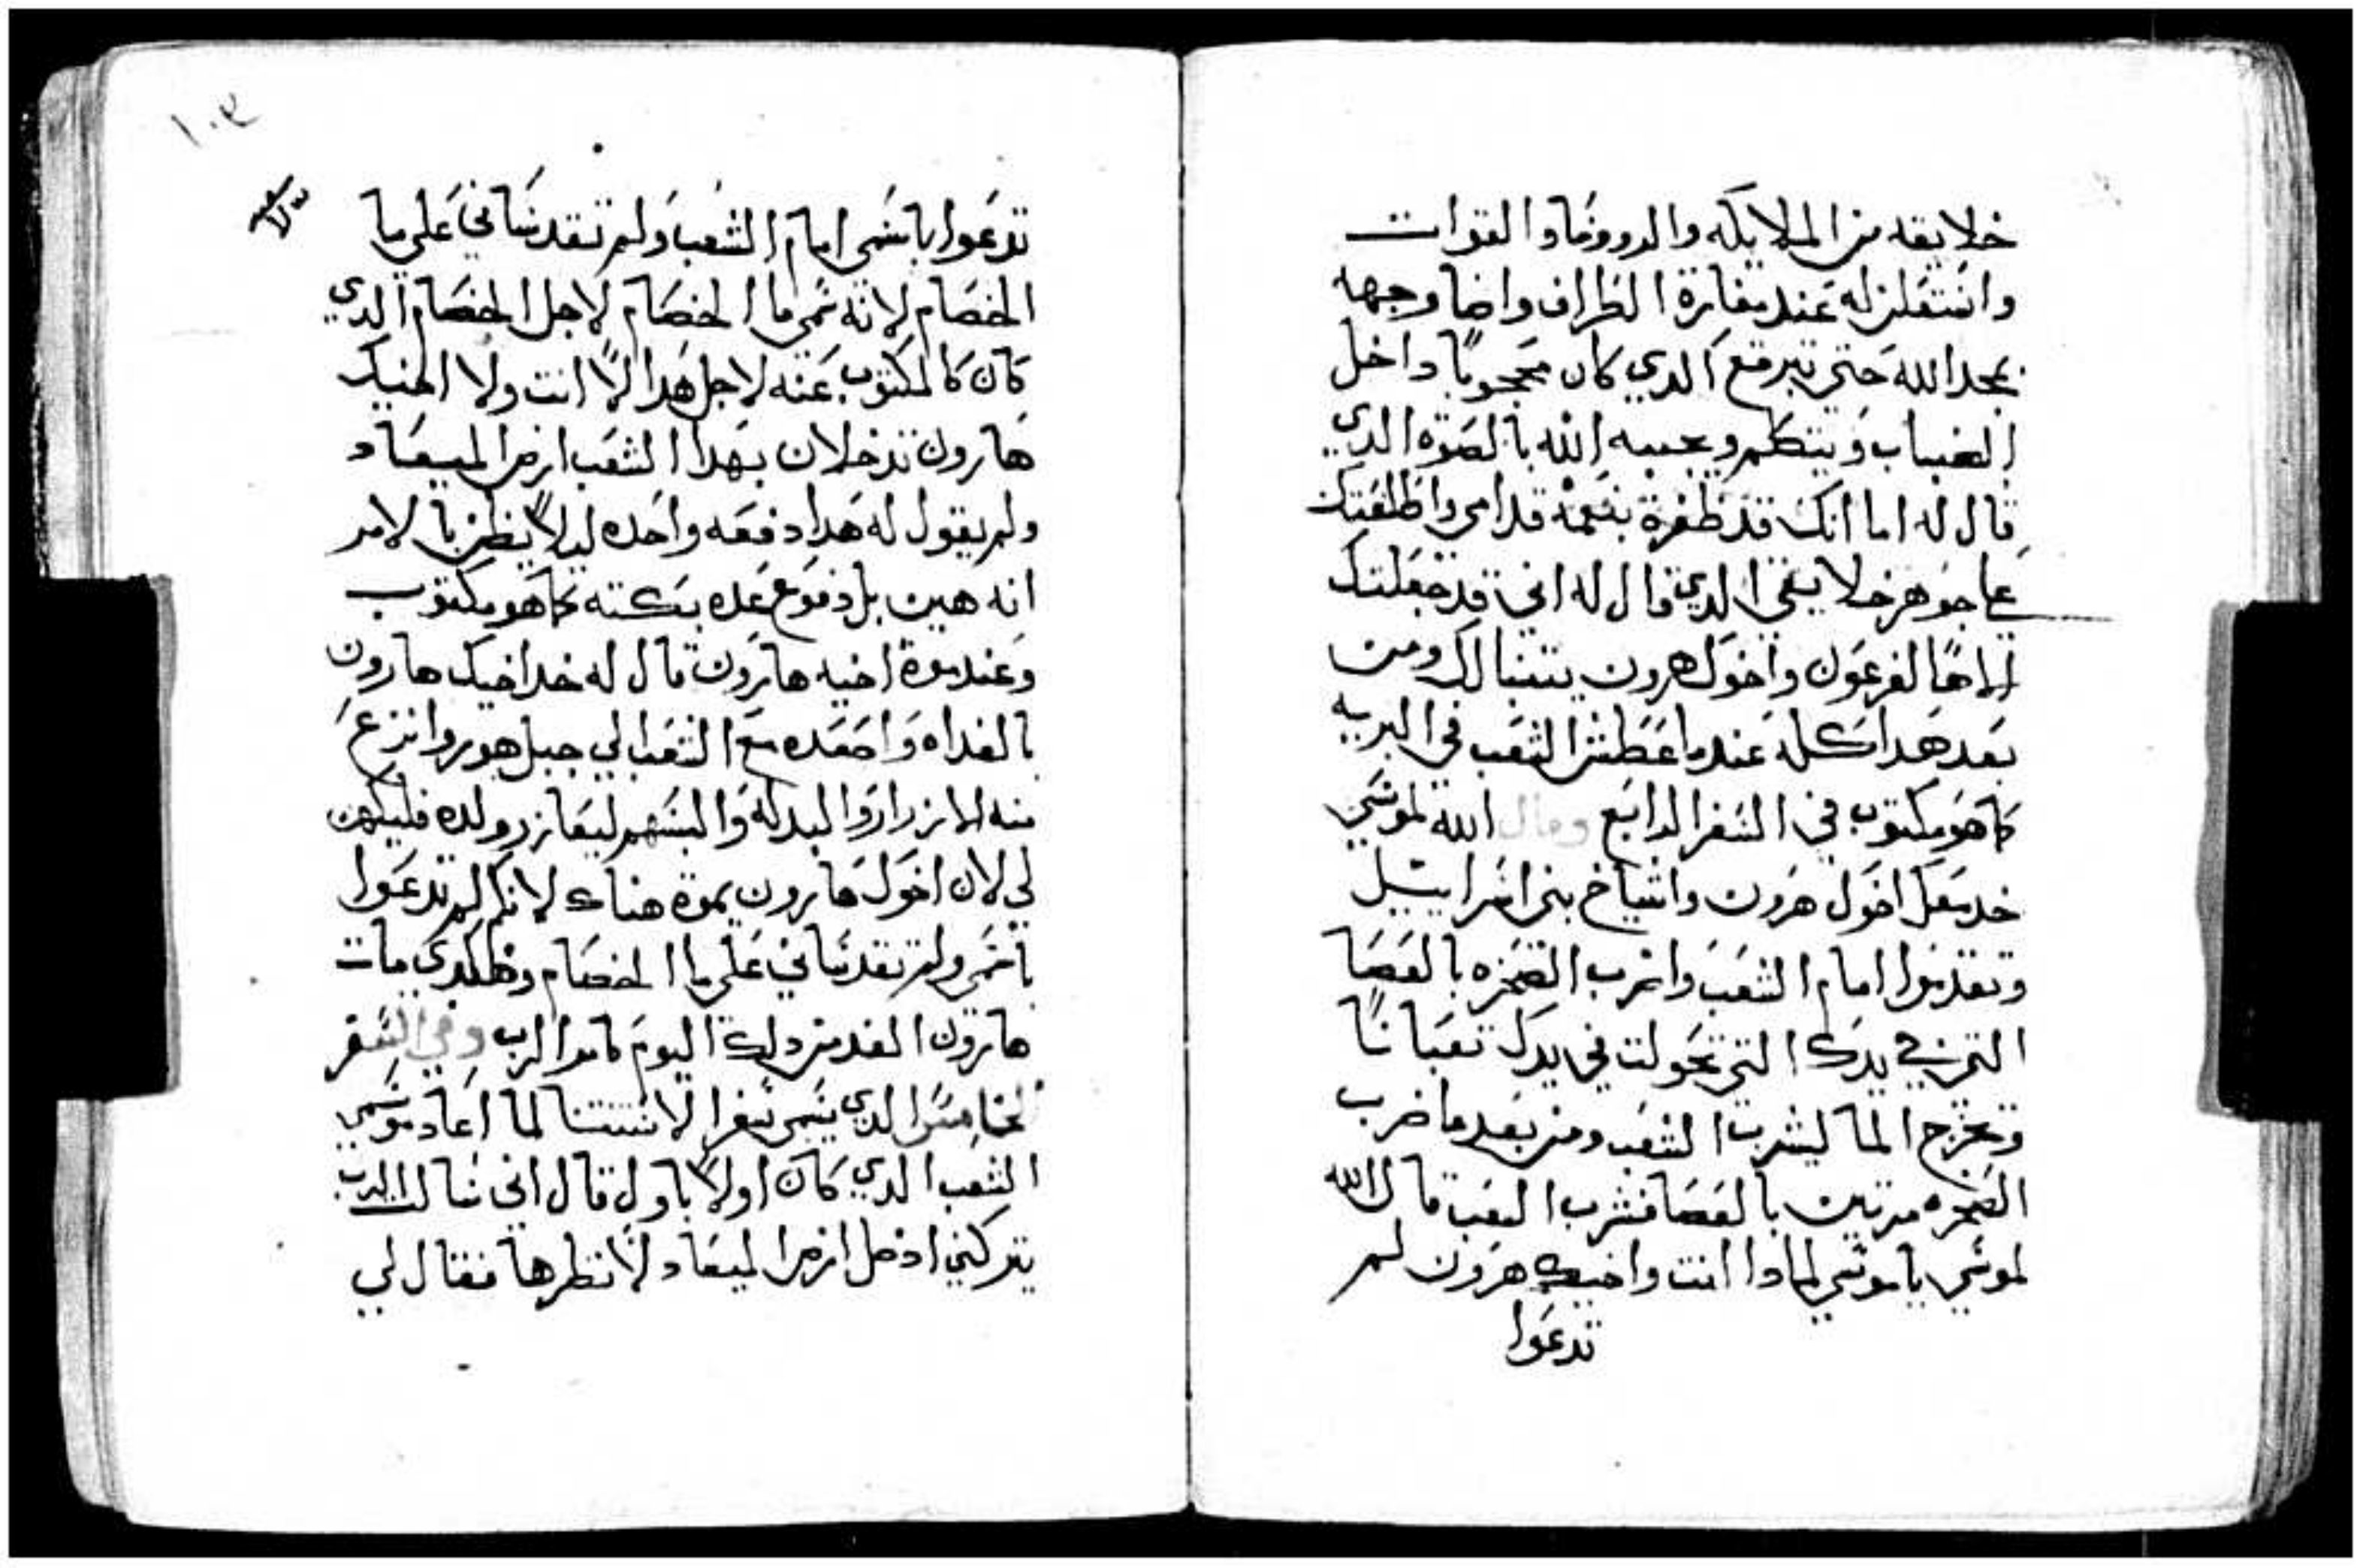 خلايقه من الملايكه والدروونا والقوات
واستعلن له عند مغارة الظران واضا وجهه
بمجد الله حتي تبرقع الدي كان محجوبًا داخل
الضباب ويتكلم ويجيبه الله بالصوة الدي
قال له اما انك قد ظفرة بنعمه قدامي واظلعتك
علي جوهر خلايقي الدي قال له اني قد جعلتك
الاهًا لفرعون واخوك هرون يتنبا لك ومن
بعد هدا كله عندما عطش الشعب في البريه
كما هو مكتوب في السفر الرابع وقال الله لموسي
خد معك اخوك هرون واشياخ بني اسراييل
وتقدموا امام الشعب واضرب الصخره بالعصا
التي في يدك التي تحولت في يدك تعبانًا
وتخرج الما ليشرب الشعب ومن بعد ما ضرب
الصخره مرتين بالعصا فشرب الشعب قال الله
لموسي يا موسي لمادا انت واخيك هرون لم
تدعوا
١٠٣
تدعوا باسمي امام الشعب ولم تقدساني علي ما
الخصام لانه سمي ما الخصام لاجل الخصام الدي
كان كالمكتوب عنه لاجل هدا لا انت ولا اخيك
هارون تدخلان بهدا الشعب ارض الميعاد
ولم يقول له هدا دفعه واحده ليلا يظن بالامر
انه هين بل دفوع عده بكته كما هو مكتوب
وعند موة اخيه هارون قال له خد اخيك هارون
بالغداه واصعده مع الشعب الي جبل هور وانزع
منه الازرار والبدله والبسهم ليعازر ولده فليكهن
لي لان اخوك هارون يموة هناك لانكما لم تدعوا
باسمي ولم تقدساني علي ما الخصام وهكدي مات
هارون الغد من دلك اليوم كامر الرب وفي السفر
الخامس الدي يسمي سفر الاستتنا لما اعاد موسي
الشعب الدي كان اولًا باول قال اني سالت الرب
يتركني ادخل ارض الميعاد لانظرها فقال لي